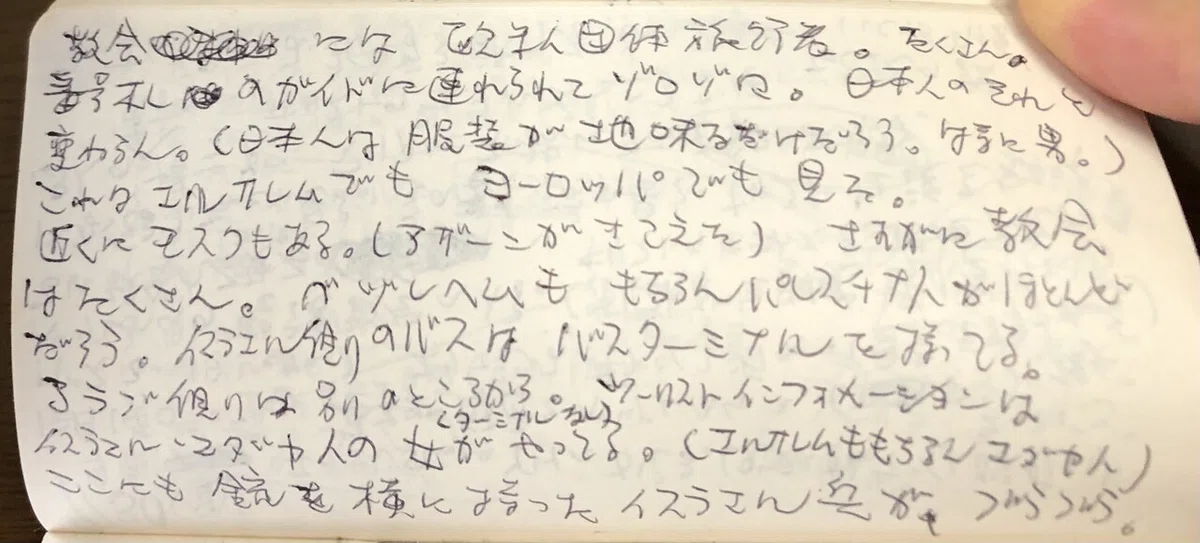 教会 には 欧米人団体旅行者。たくさん。
番号札 のガイドに連れられてゾロゾロ。日本人のそれと
変わらん。(日本人は服装が地味なだけだろう。 男。)
これはエルサレムでも ヨーロッパでも見た。
近くにモスクもある。(アザーンがきこえた) さすがに教会
はたくさん。ベツレヘムももちろんパレスチナ人がほとんど
だろう。イスラエル側のバスはバスターミナルを持ってる。
アラブ側りは別のところから。ツーリストインフォメーションは
(ターミナルなし)
イスラエル・ユダヤ人の女がやってる。(エルサレムももちろんユダヤ人)
ここにも銃を横に持ったイスラエル兵が、つらつら。